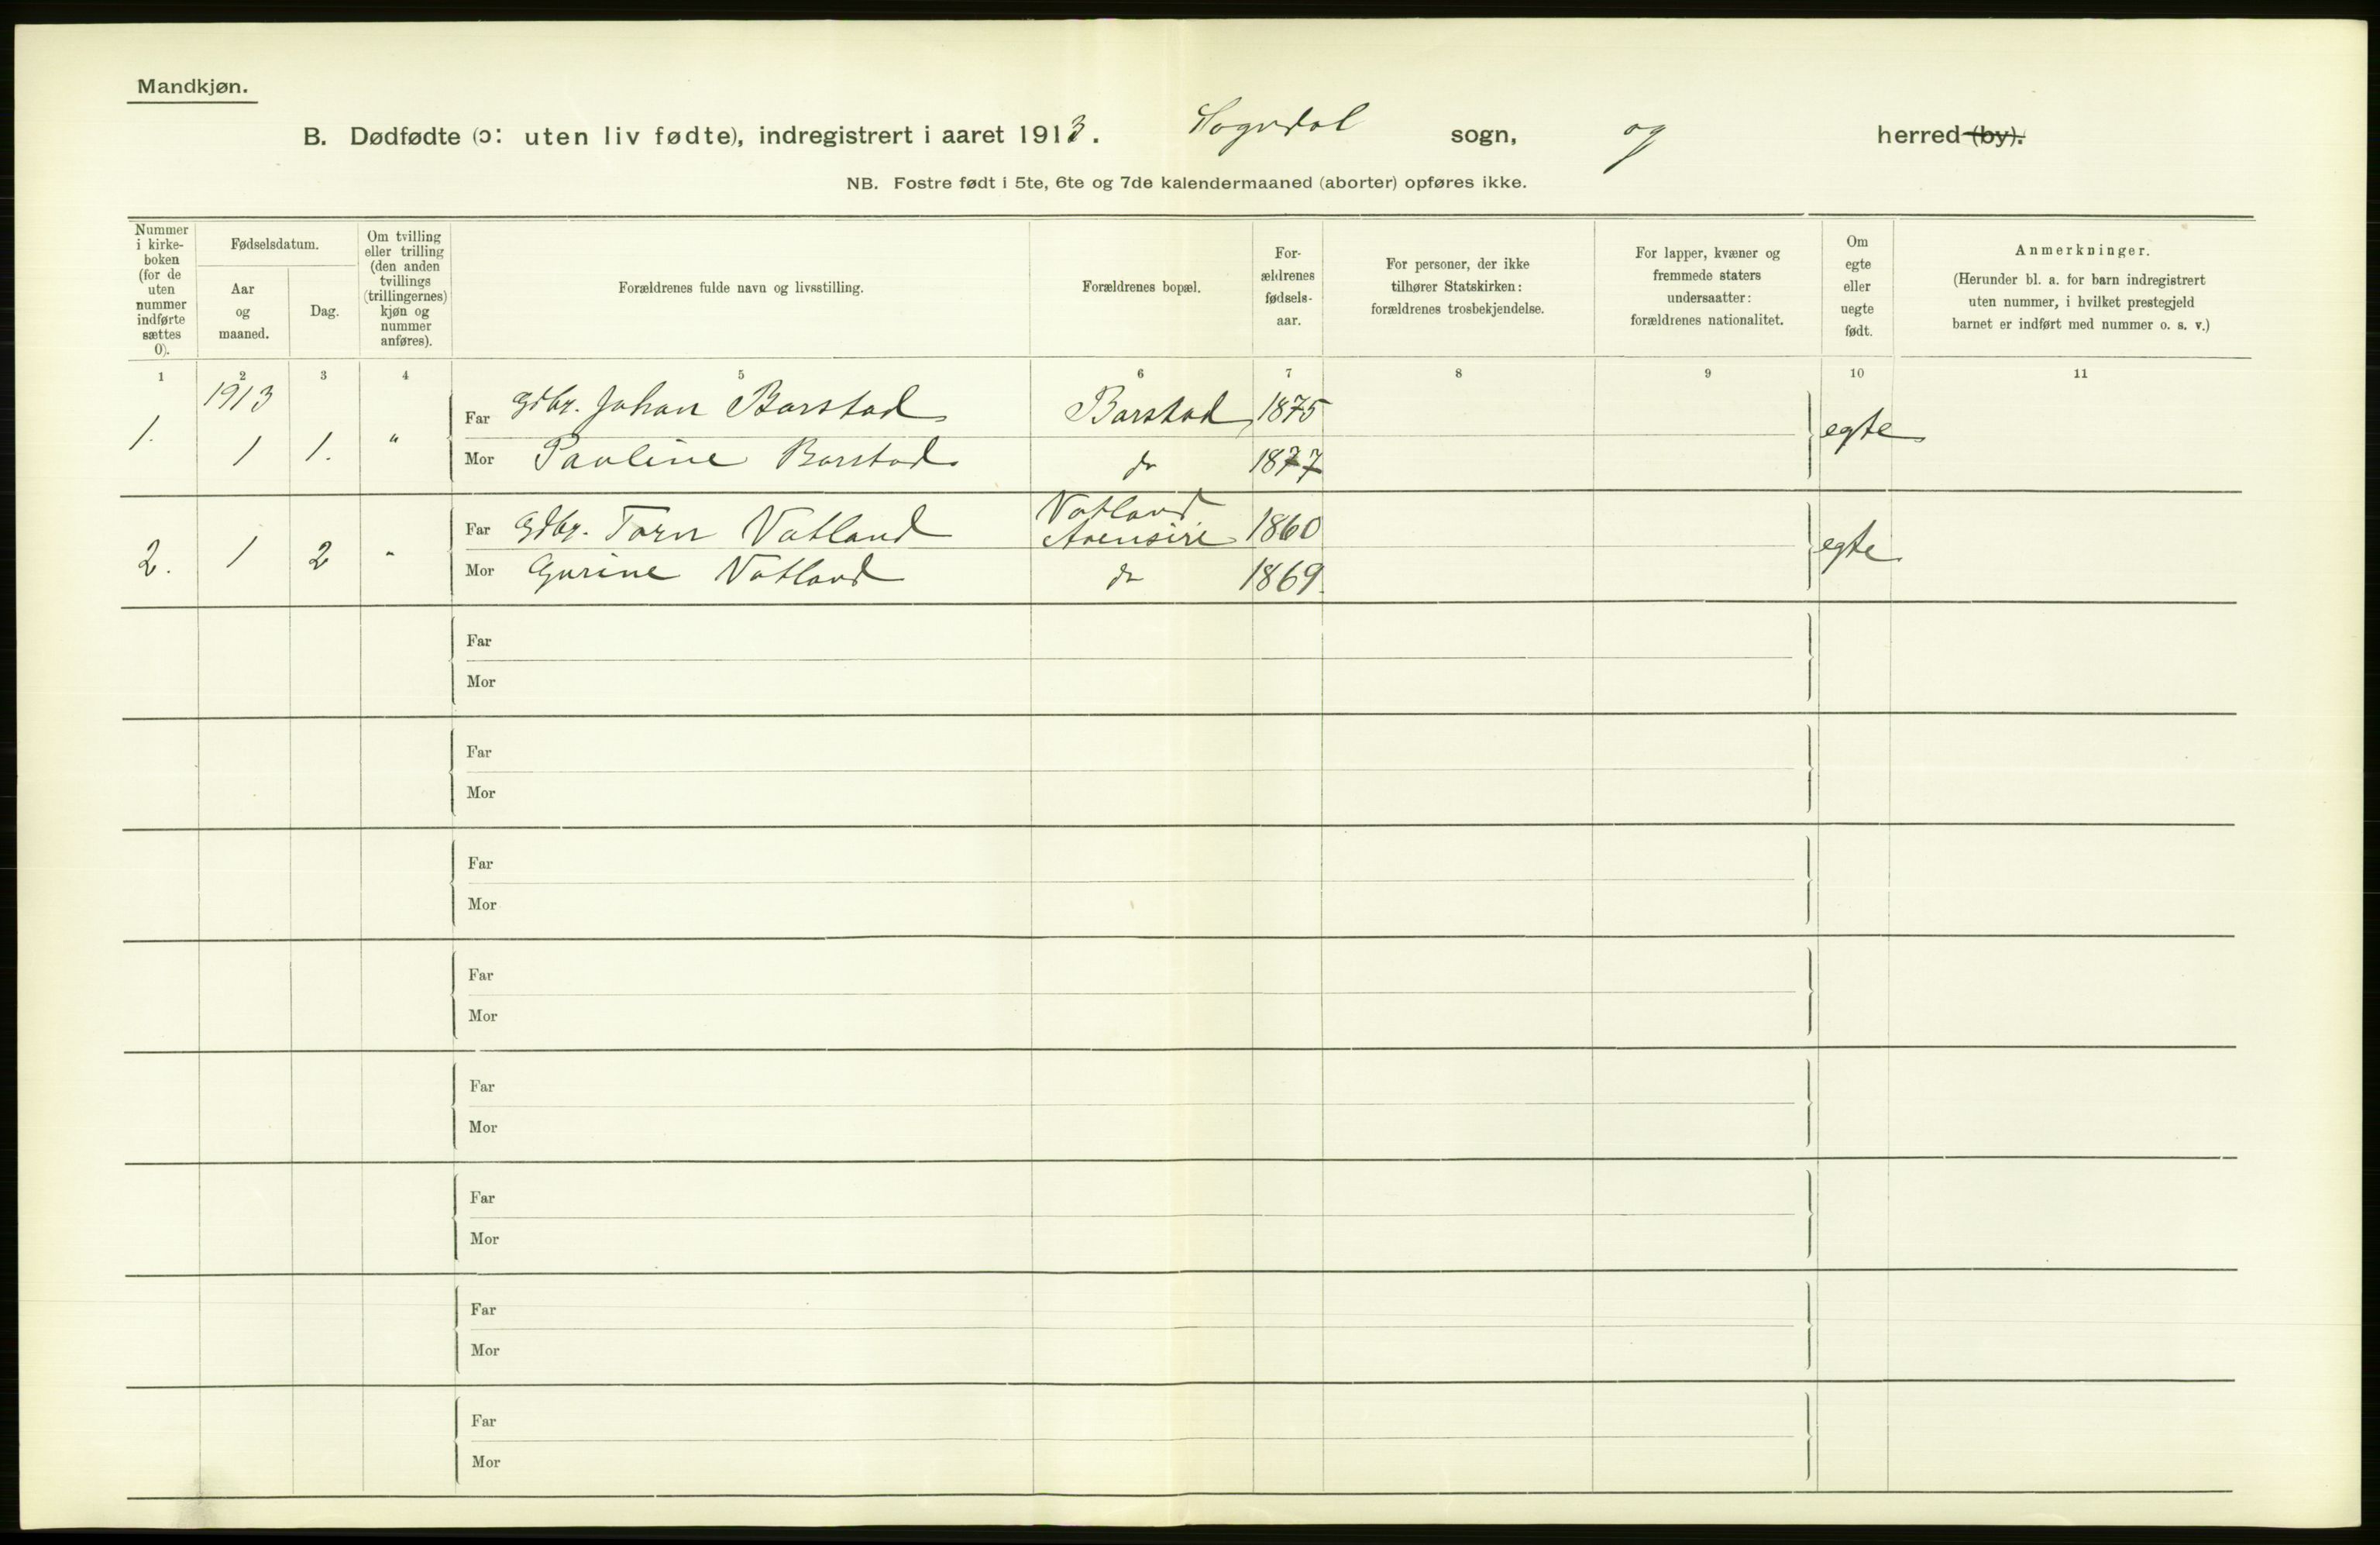 Mandkjøn.
B. Dødfødte (ɔ: uten liv fødte), indregistrert i aaret 1913. Sogndal sogn, og herred (by).
NB. Fostre født i 5te, 6te og 7de kalendermaaned (aborter) opføres ikke.
Nummer i kirkeboken (for de uten nummer indførte sættes 0).
Fødselsdatum.
Aar og maaned.
Dag.
Om tvilling eller trilling (den anden tvillings (trillingernes) kjøn og nummer anføres).
Forældrenes fulde navn og livsstilling.
Forældrenes bopæl.
Forældrenes fødselsaar.
For personer, der ikke tilhører Statskirken: forældrenes trosbekjendelse.
For lapper, kvæner og fremmede staters undersaatter: forældrenes nationalitet.
Om egte eller uegte født.
Anmerkninger.
(Herunder bl. a. for barn indregistrert uten nummer, i hvilket prestegjeld barnet er indført med nummer o. s. v.)
1 2 3 4 5 6 7 8 9 10 11
1913
1. 1 1. " Far Gdbr. Johan Barstad Barstad 1875 egte
Mor Pauline Barstad do 1877
2. 1 2 " Far Gdbr. Tørn Vatland Vatland 1860 egte
Mor Gurine Vatland do 1869.
Far
Mor
Far
Mor
Far
Mor
Far
Mor
Far
Mor
Far
Mor
Far
Mor
Far
Mor